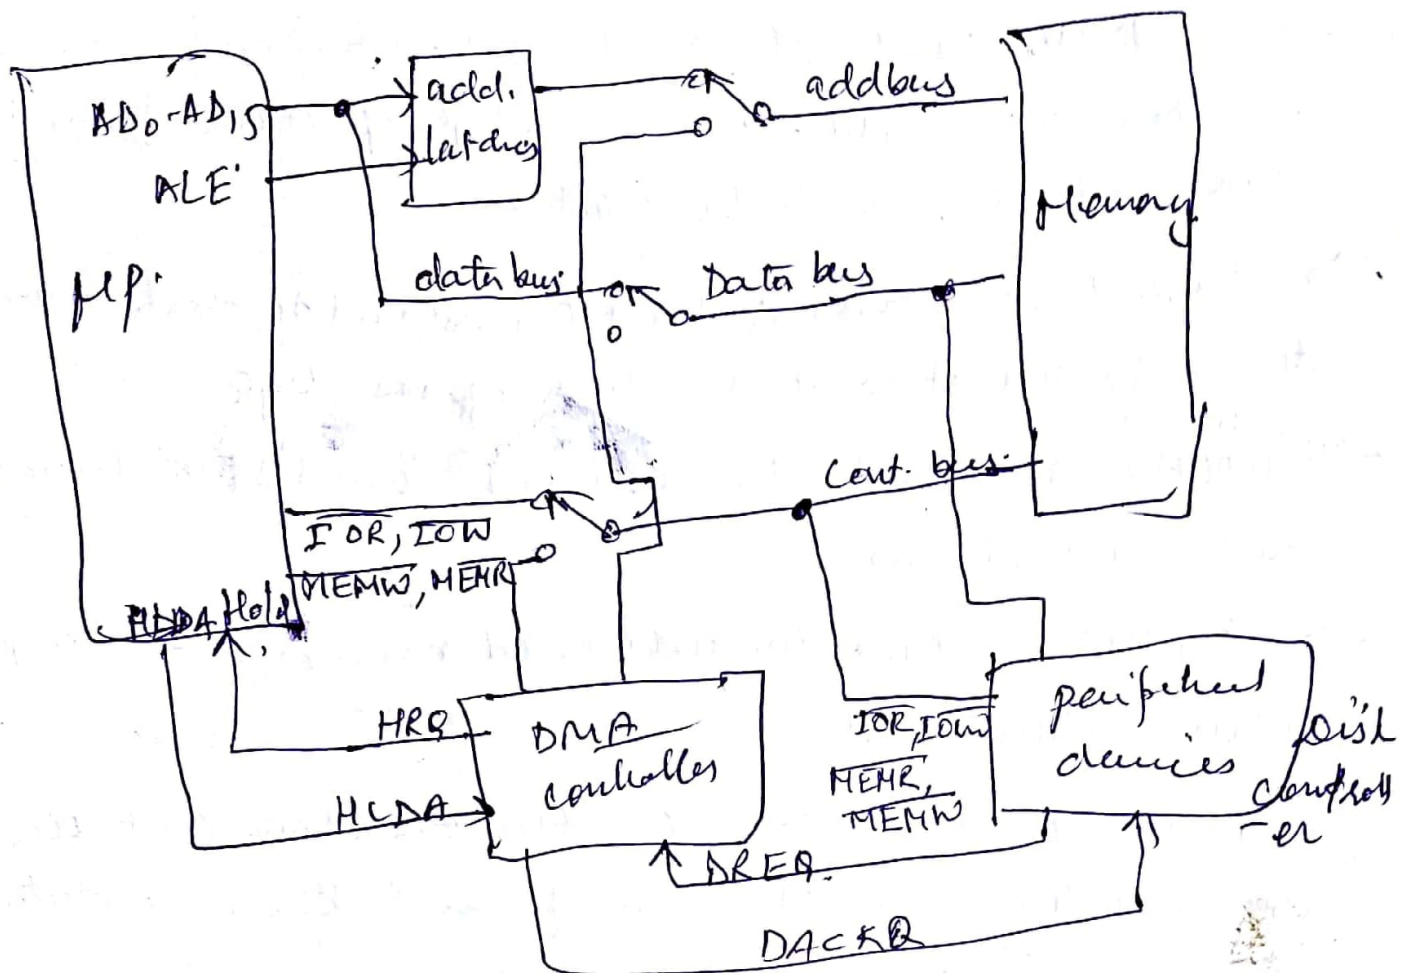 AD0-AD15
ALE
μP.
add.
latches
addbus
Memory
data bus
Data bus
Cont. bus
I̅O̅R̅, I̅O̅W̅
M̅E̅M̅W̅, M̅E̅M̅R̅
HLDA Hold
HRQ
HLDA
DMA
controller
DREQ.
DACKQ
I̅O̅R̅, I̅O̅W̅
M̅E̅M̅R̅,
M̅E̅M̅W̅
peripheral
devices
Disk
controll
-er